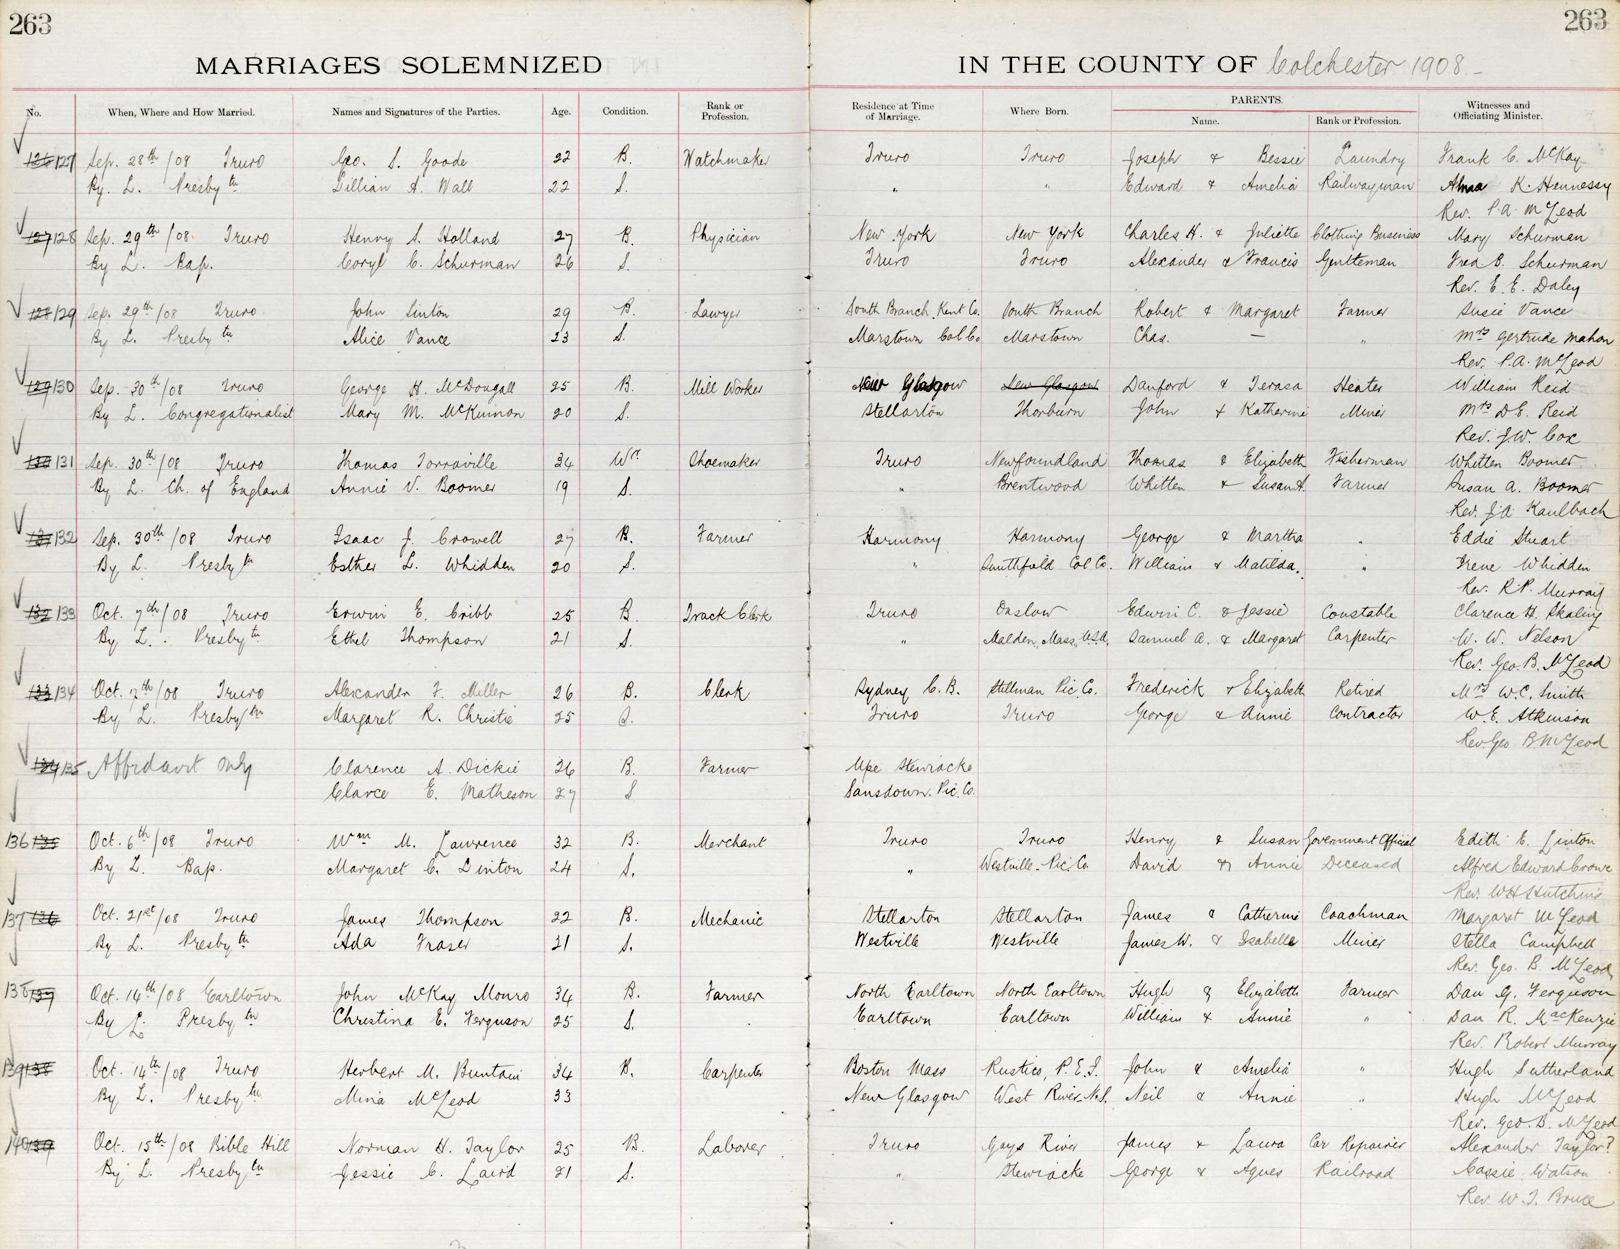 263
263
MARRIAGES SOLEMNIZED IN THE COUNTY OF Colchester 1908
No. When, Where and How Married. Names and Signatures of the Parties. Age. Condition. Rank or Profession. Residence at Time of Marriage. Where Born. PARENTS. Name. Rank or Profession. Witnesses and Officiating Minister.
126 127 Sep. 28th /08 Truro Geo. S. Goode 22 B. Watchmaker Truro Truro Joseph & Bessie Laundry Frank C. McKay
By L. Presbytn Lillian A. Wall 22 S. " " Edward & Amelia Railwayman Alma K. Hennessy
Rev. P.A. McLeod
127 128 Sep. 29th /08 Truro Henry S. Holland 27 B. Physician New York New York Charles H. & Juliette Clothing Business Mary Schurman
By L. Bap. Coryl C. Schurman 26 S. Truro Truro Alexander & Francis Gentleman Fred E. Schurman
Rev. E. E. Daley
128 129 Sep. 29th /08 Truro John Sinton 29 B. Lawyer South Branch Kent Co. South Branch Robert & Margaret Farmer Susie Vance
By L. Presbytn Alice Vance 23 S. Marstown Col Co. Marstown Chas. — " Mrs Gertrude Mahon
Rev. P.A. McLeod
129 130 Sep. 30th /08 Truro George H. McDougall 25 B. Mill Worker New Glasgow New Glasgow Danford & Terasa Heater William Reid
By L. Congregationalist Mary M. McKinnon 20 S. Stellarton Thorburn John & Katherine Miner Mrs D.E. Reid
Rev. J.W. Cox
130 131 Sep. 30th /08 Truro Thomas Torraville 34 Wr. Shoemaker Truro Newfoundland Thomas & Elizabeth Fisherman Whitten Boomer
By L. Ch. of England Annie V. Boomer 19 S. " Brentwood Whitten & Susan A. Farmer Susan A. Boomer
Rev. J.A. Kaulbach
131 132 Sep. 30th /08 Truro Isaac J. Crowell 27 B. Farmer Harmony Harmony George & Martha " Eddie Stuart
By L. Presbytn Esther L. Whidden 20 S. " Smithfield Col Co. William & Matilda " Irene Whidden
Rev. R.P. Murray
132 133 Oct. 7th /08 Truro Erwin E. Cribb 25 B. Track Clerk Truro Onslow Edwin C. & Jessie Constable Clarence H. Skaling
By L. Presbytn Ethel Thompson 21 S. " Malden, Mass, U.S.A. Samuel A. & Margaret Carpenter W. W. Nelson
Rev. Geo. B. McLeod
133 134 Oct. 7th /08 Truro Alexander F. Miller 26 B. Clerk Sydney C.B. Stillman Pic Co. Frederick & Elizabeth Retired Mrs W.C. Smith
By L. Presbytn Margaret R. Christie 25 S. Truro Truro George & Annie Contractor W.E. Atkinson
Rev Geo B McLeod
134 135 Affidavit Only Clarence A. Dickie 26 B. Farmer Upe Stewiacke
Clarce E. Matheson 27 S Lansdown. Pic. Co.
136 135 Oct. 6th /08 Truro Wm M. Lawrence 32 B. Merchant Truro Truro Henry & Susan Government Official Edith E. Linton
By L. Bap. Margaret C. Linton 24 S. " Westville. Pic. Co David & Annie Deceased Alfred Edward Crowe
Rev. W H Hutchins
137 136 Oct. 21st /08 Truro James Thompson 22 B. Mechanic Stellarton Stellarton James & Catherine Coachman Margaret McLeod
By L. Presbytn Ada Fraser 21 S. Westville Westville James W. & Isabelle Miner Stella Campbell
Rev. Geo. B. McLeod
138 137 Oct. 14th /08 Earltown John McKay Monro 34 B. Farmer North Earltown North Earltown Hugh & Elizabeth Farmer Dan G. Ferguson
By L. Presbytn Christina E. Ferguson 25 S. Earltown Earltown William & Annie " Dan R. MacKenzie
Rev. Robert Murray
139 138 Oct. 14th /08 Truro Herbert M. Buntain 34 B. Carpenter Boston Mass Rustico, P.E.I. John & Amelia " Hugh Sutherland
By L. Presbytn Mina McLeod 33 New Glasgow West River N.S. Neil & Annie " Hugh McLeod
Rev. Geo. B. McLeod
140 139 Oct. 15th /08 Bible Hill Norman H. Taylor 25 B. Laborer Truro Gays River James & Laura Car Repairer Alexander Taylor?
By L. Presbytn Jessie C. Laird 21 S. " Stewiacke George & Agnes Railroad Cassie Watson
Rev W. T. Bruce